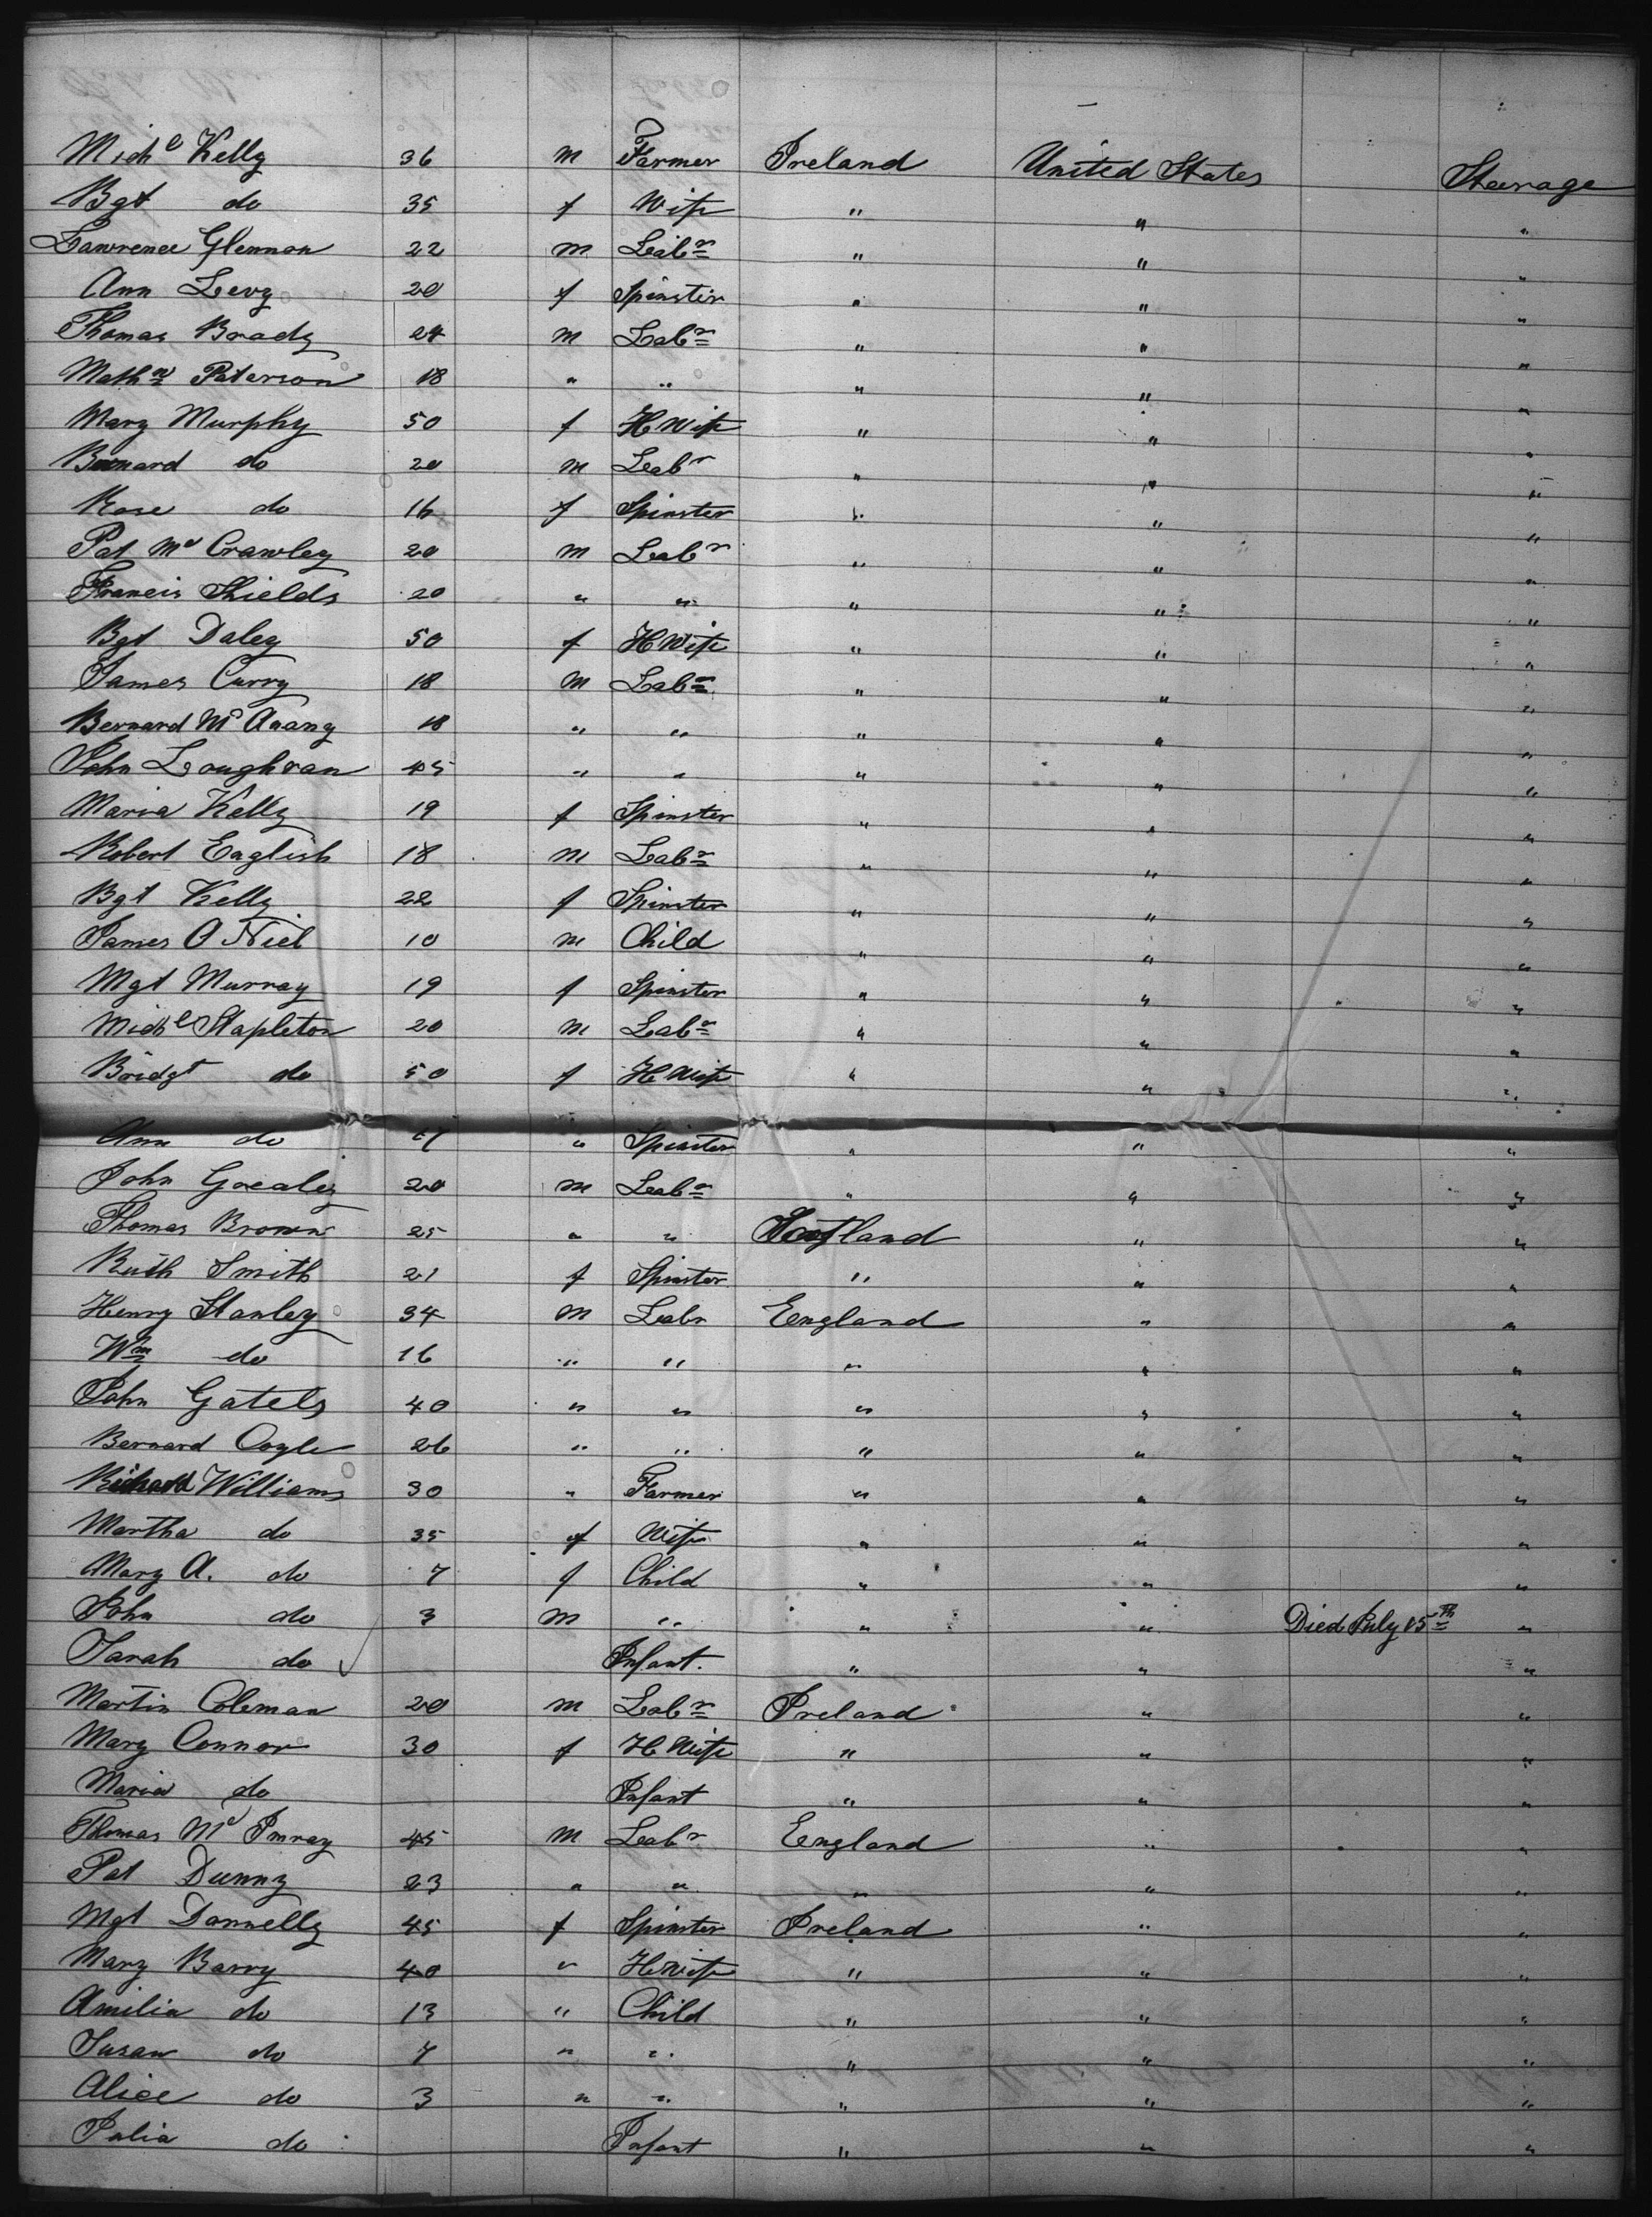 Mich^l Kelly 36 m Farmer Ireland United States Steerage
Bgt do 35 f Wife " " "
Lawrence Glennon 22 m Lab^r " " "
Ann Levy 20 f Spinster " " "
Thomas Brady 24 m Lab^r " " "
Math^w Paterson 18 " " " " "
Mary Murphy 50 f H Wife " " "
Bernard do 20 m Lab^r " " "
Rose do 16 f Spinster " " "
Pat Mc Crawley 20 m Lab^r " " "
Francis Shields 20 " " " " "
Bgt Daley 50 f H Wife " " "
James Curry 18 m Lab^r " " "
Bernard Mc 18 " " " " "
John Loughran 45 " " " " "
Maria Kelly 19 f Spinster " " "
Robert English 18 m Lab^r " " "
Bgt Kelly 22 f Spinster " " "
James O Niel 10 m Child " " "
Mgt Murray 19 f Spinster " " "
Mich^l Stapleton 20 m Lab^r " " "
Bridgt do 50 f H Wife " " "
Ann do " Spinster " " "
John Grealey 20 m Lab^r " " "
Thomas Brown 25 " " Scotland " "
Ruth Smith 21 f Spinster " " "
Henry Stanley 34 m Labr England " "
W^m do 16 " " " " "
John Gatels 40 " " " " "
Bernard Cogle 26 " " " " "
Richard Williams 30 " Farmer " " "
Martha do 35 f Wife " " "
Mary A. do 7 f Child " " "
John do 3 m " " " Died July 15th "
Sarah do Infant. " " "
Martin Coleman 20 m Lab^r Ireland " "
Mary Connor 30 f H Wife " " "
Maria do Infant " " "
Thomas Mc 45 m Lab^r England " "
Pat Dunny 23 " " " " "
Mgt Donnelly 45 f Spinster Ireland " "
Mary Barry 40 " H Wife " " "
Amilia do 13 " Child " " "
Susan do 7 " " " " "
Alice do 3 " " " " "
Julia do Infant " " "